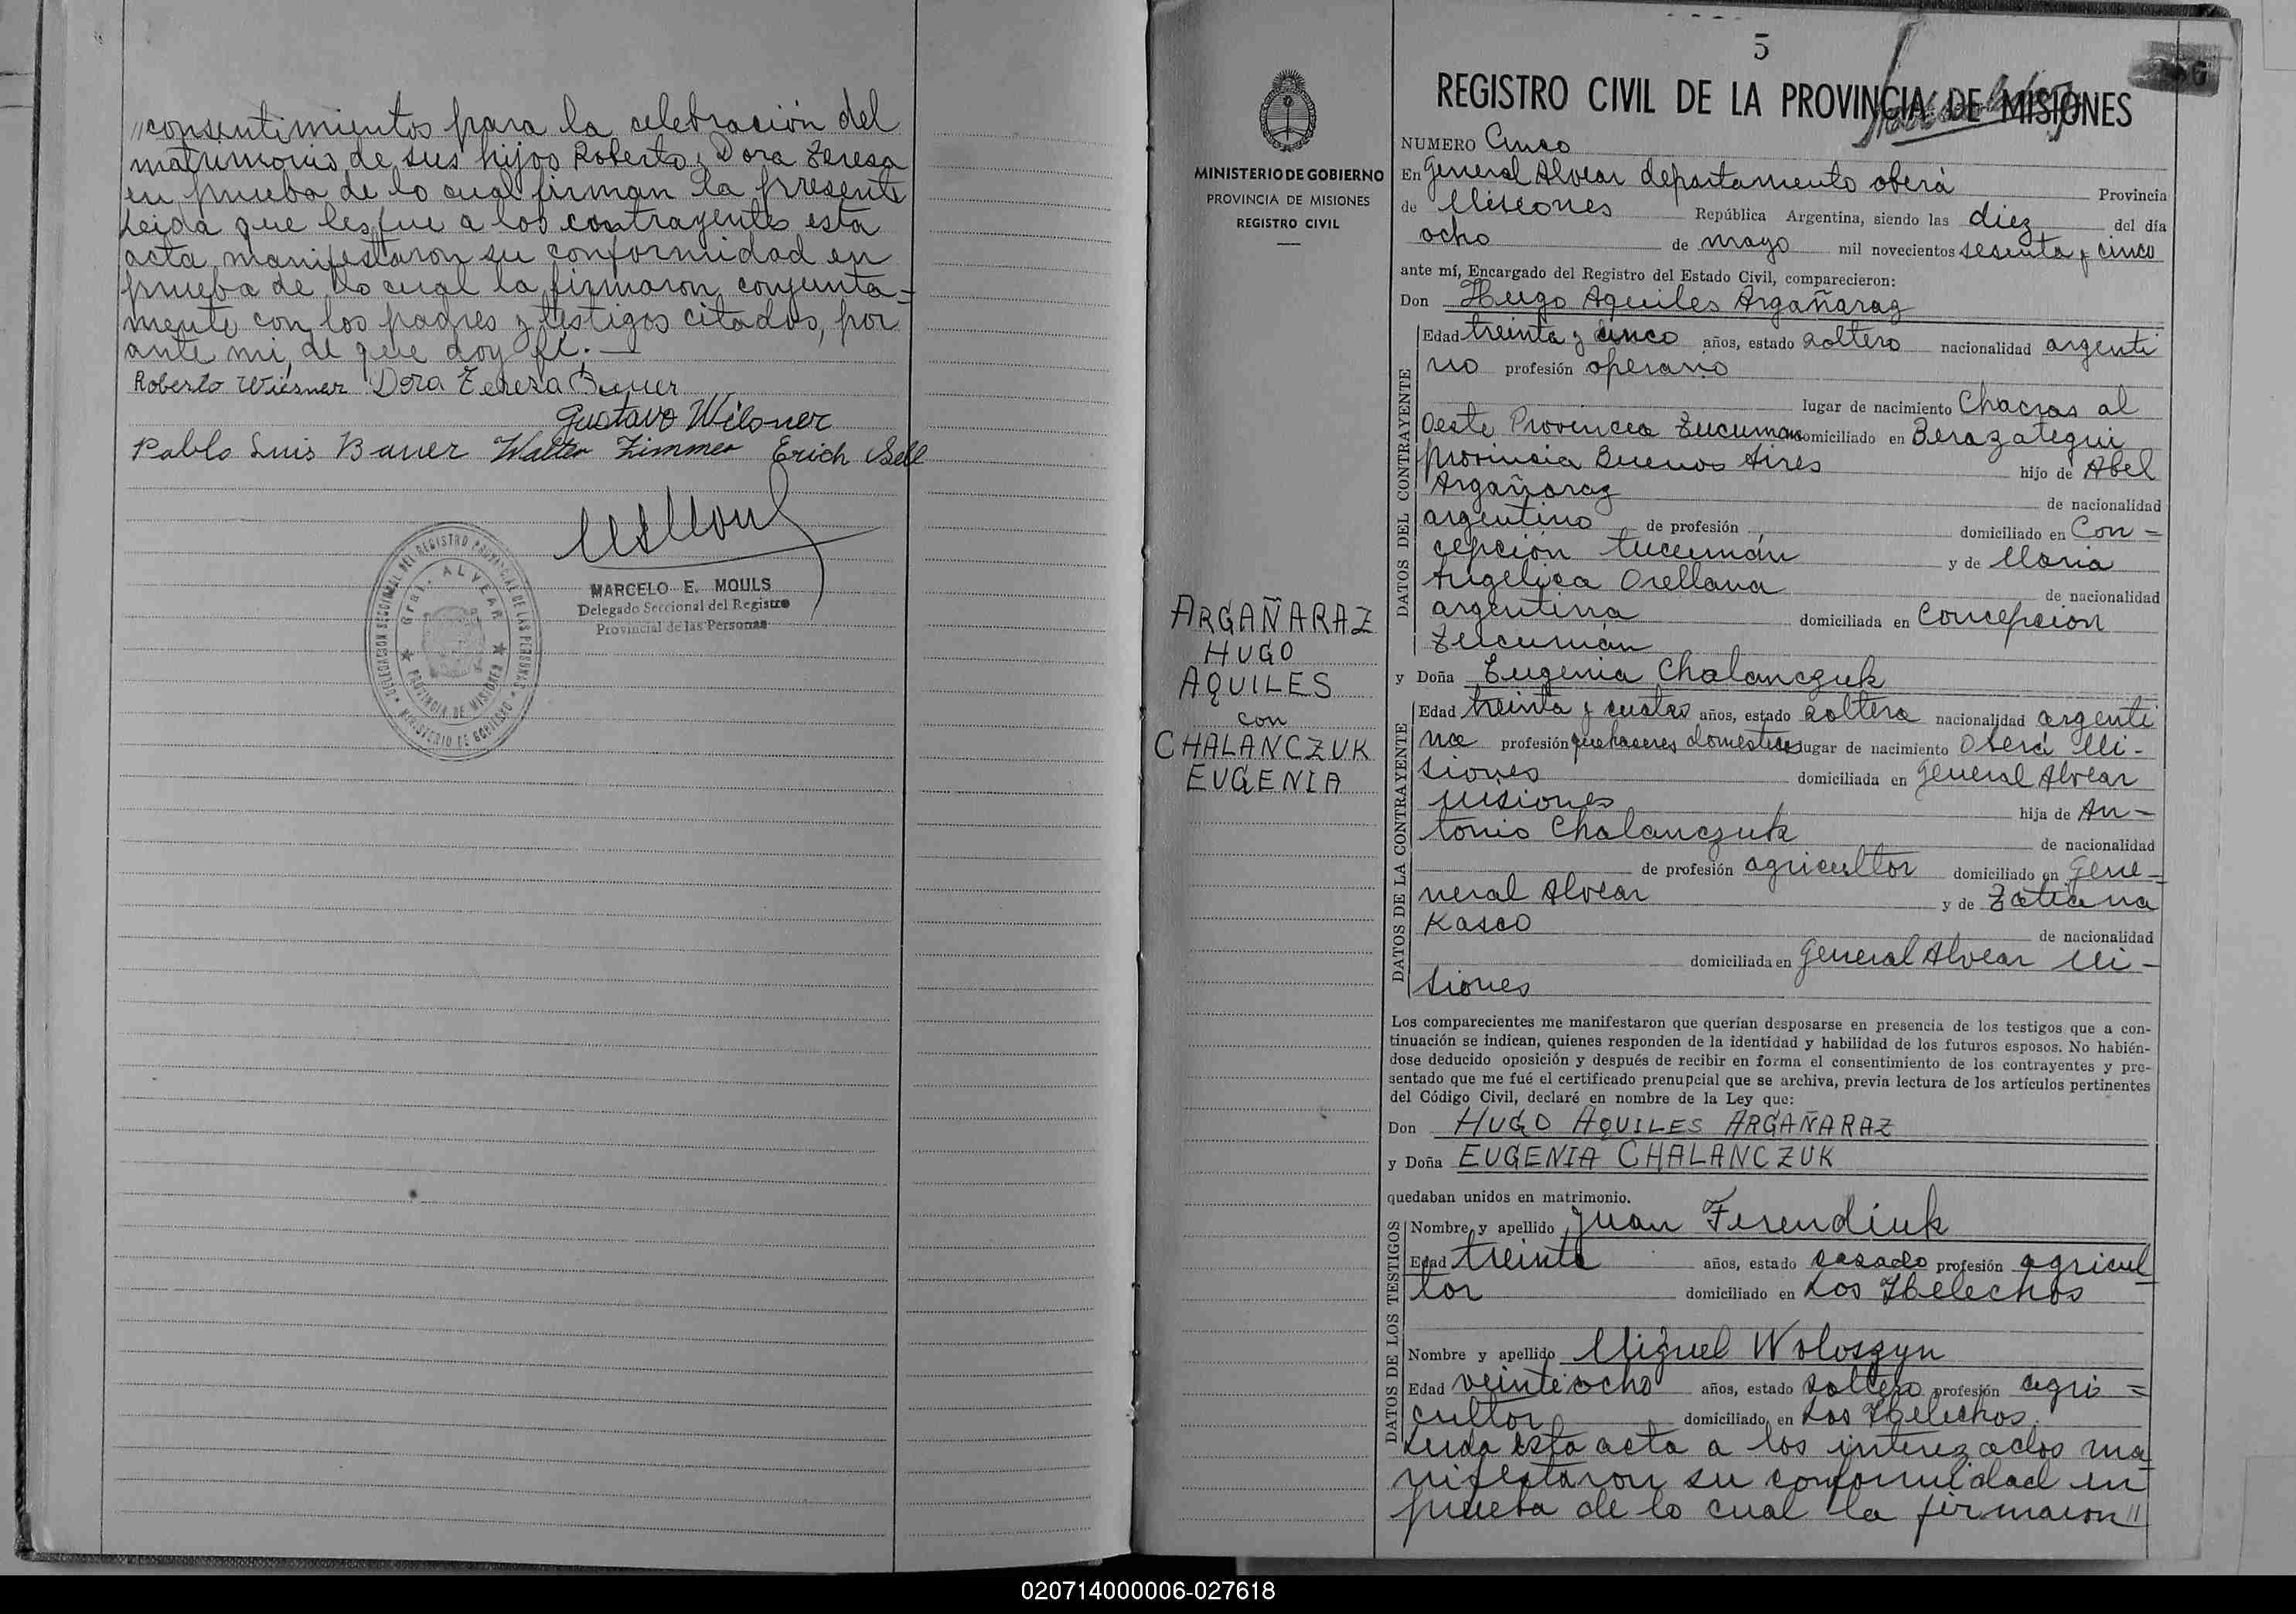 //consentimientos para la celebración del
matrimonio de sus hijos Roberto y Dora Teresa
en prueba de lo cual firman la presente
Leida que les fue a los contrayentes esta
acta manifestaron su conformidad en
prueba de lo cual la firmaron conjunta-
mente con los padres y testigos citados, por
ante mi, de que doy fé.—
Roberto Wiesner Dora Teresa Bauer
Gustavo Wilsner
Pablo Luis Bauer Walter Zimmer Erich Sell
MARCELO E. MOULS
Delegado Seccional del Registro
Provincial de las Personas
DELEGACION SECCIONAL DEL REGISTRO PROVINCIAL DE LAS PERSONAS
Gral. ALVEAR
PROVINCIA DE MISIONES
MINISTERIO DE GOBIERNO
MINISTERIO DE GOBIERNO
PROVINCIA DE MISIONES
REGISTRO CIVIL
ARGAÑARAZ
HUGO
AQUILES
con
CHALANCZUK
EUGENIA
5
REGISTRO CIVIL DE LA PROVINCIA DE MISIONES
NUMERO Cinco
En General Alvear departamento oberá Provincia
de Misiones República Argentina, siendo las diez del día
ocho de mayo mil novecientos sesenta y cinco
ante mí, Encargado del Registro del Estado Civil, comparecieron:
Don Hugo Aquiles Argañaraz
DATOS DEL CONTRAYENTE
Edad treinta y cinco años, estado soltero nacionalidad argenti
no profesión operario
lugar de nacimiento Chacras al
Oeste Provincia Tucuman domiciliado en Berazategui
provincia Buenos Aires hijo de Abel
Argañaraz de nacionalidad
argentino de profesión domiciliado en Con=
cepción tucumán y de Maria
Angélica Orellana de nacionalidad
argentina domiciliada en Concepcion
Tucumán
y Doña Eugenia Chalanczuk
DATOS DE LA CONTRAYENTE
Edad treinta y cuatro años, estado soltera nacionalidad argenti
na profesión quehaceres domesticos lugar de nacimiento Oberá Mi-
siones domiciliada en General Alvear
misiones hija de An-
tonio Chalanczuk de nacionalidad
de profesión agricultor domiciliado en Gene-
neral Alvear y de Tatiana
Kasco de nacionalidad
domiciliada en General Alvear Mi-
siones
Los comparecientes me manifestaron que querían desposarse en presencia de los testigos que a con-
tinuación se indican, quienes responden de la identidad y habilidad de los futuros esposos. No habién-
dose deducido oposición y después de recibir en forma el consentimiento de los contrayentes y pre-
sentado que me fué el certificado prenupcial que se archiva, previa lectura de los artículos pertinentes
del Código Civil, declaré en nombre de la Ley que:
Don HUGO AQUILES ARGAÑARAZ
y Doña EUGENIA CHALANCZUK
quedaban unidos en matrimonio.
DATOS DE LOS TESTIGOS
Nombre y apellido Juan Ferendiuk
Edad treinta años, estado casado profesión agricul
tor domiciliado en Los Helechos
Nombre y apellido Miguel Woloszyn
Edad veinteocho años, estado soltero profesión agri=
cultor domiciliado en Los Helechos.
Leida esta acta a los interezados ma
nifestaron su conformidad en
prueba de lo cual la firmaron//
020714000006-027618